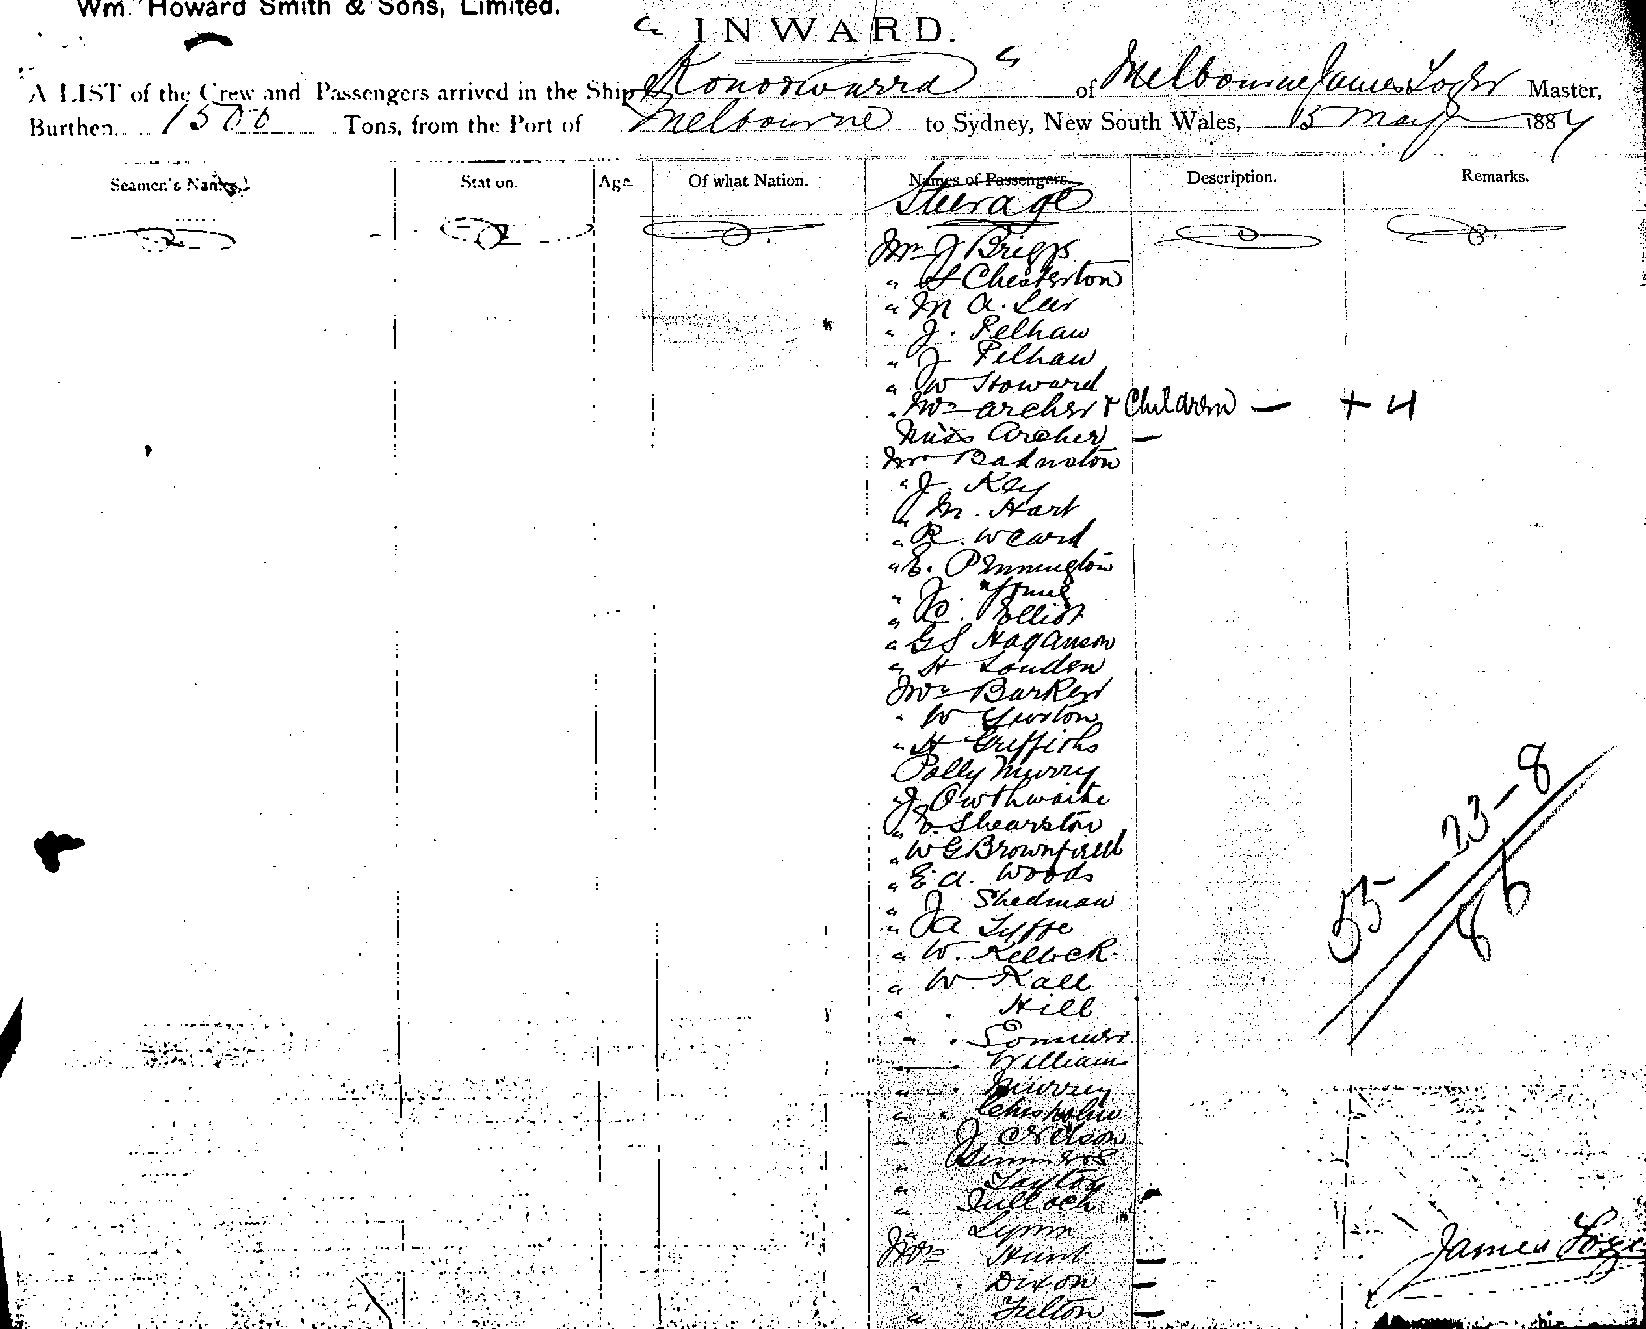 Wm. Howard Smith & Sons, Limited.
" INWARD.
A LIST of the Crew and Passengers arrived in the Ship Konoowarra " of Melbourne James Master,
Burthen 1500 Tons, from the Port of Melbourne to Sydney, New South Wales, 15 May 1887
Seamen's Names. Station. Age. Of what Nation. Names of Passengers. Description. Remarks.
Steerage
Mr J Briggs
" Chesterton
" M A. Lee
" J. Pelham
" J Pelham
" W Howard
" Mrs Archer & Children — + 4
Miss Archer —
Mr
" J. Key
" M. Hart
" R. Weard
" E. Pennington
" J.
" Elliot
" G S
" H Louden
Mrs Barker
" W
" H Griffiths
Polly Murry
J Owthwaite
" Shearston
" W G Brownfield
" E A. Woods
" J Shedman
" A Fyffe
" W. Kellock
" W Kall
" . Hill
" .
William
" . Murrey
" . Chisholm
" J Nelson
"
"
" Tulloch
" Lynn
Mrs Hunt —
" . Dixon —
" Fulton —
55 — 23 — 8
86
James